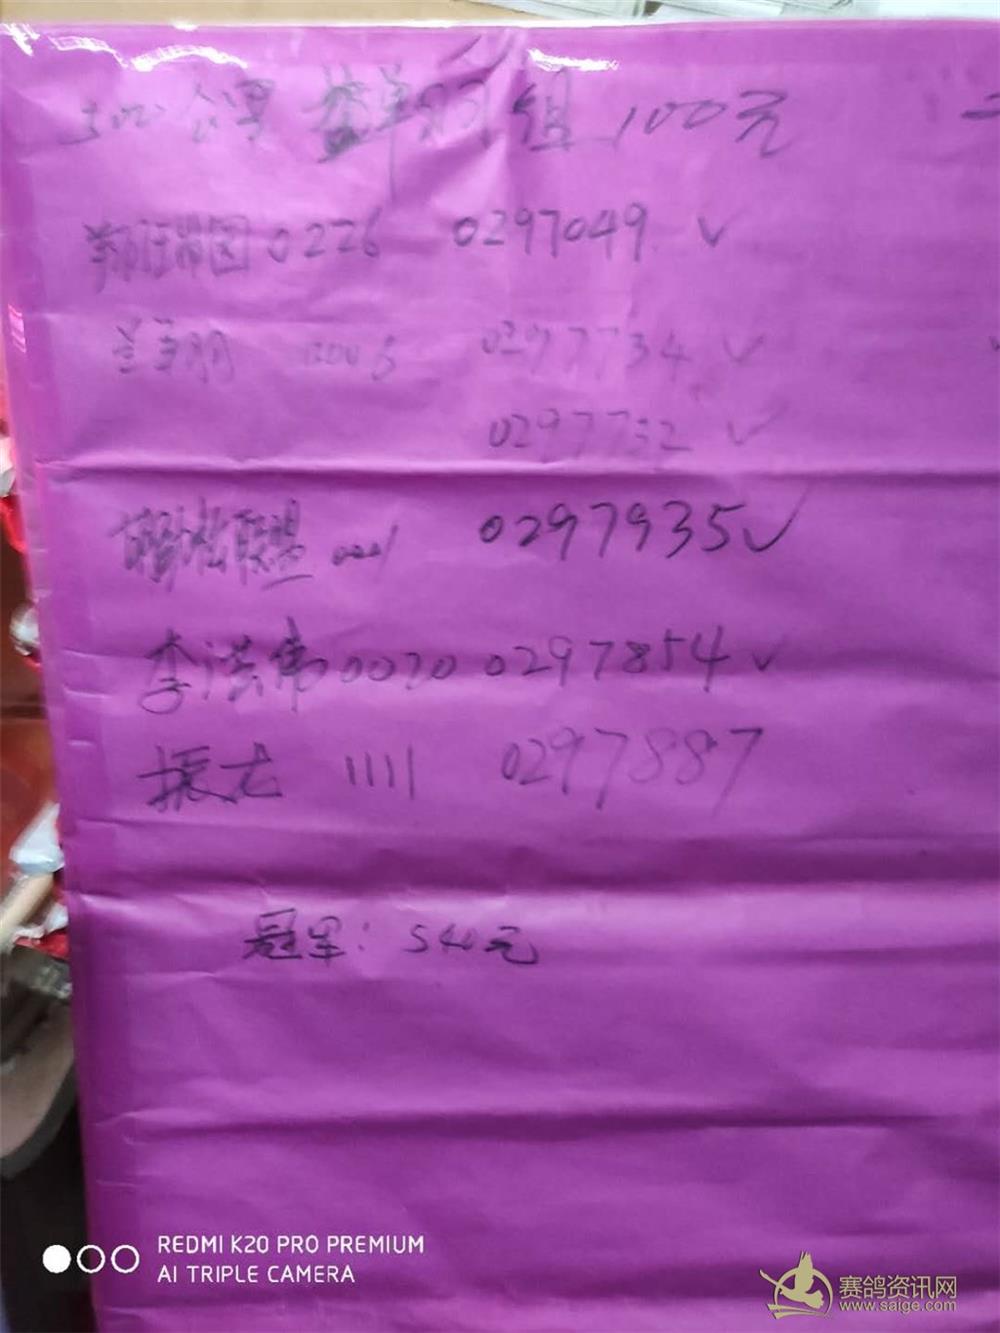 公里 组 100元 二
0226 0297049 ✓
0297734 ✓
0297732 ✓
联盟 0001 0297935 ✓
李洪伟 0070 0297854 ✓
振龙 1111 0297887
冠军: 540元
REDMI K20 PRO PREMIUM
AI TRIPLE CAMERA
赛鸽资讯网
www.saige.com